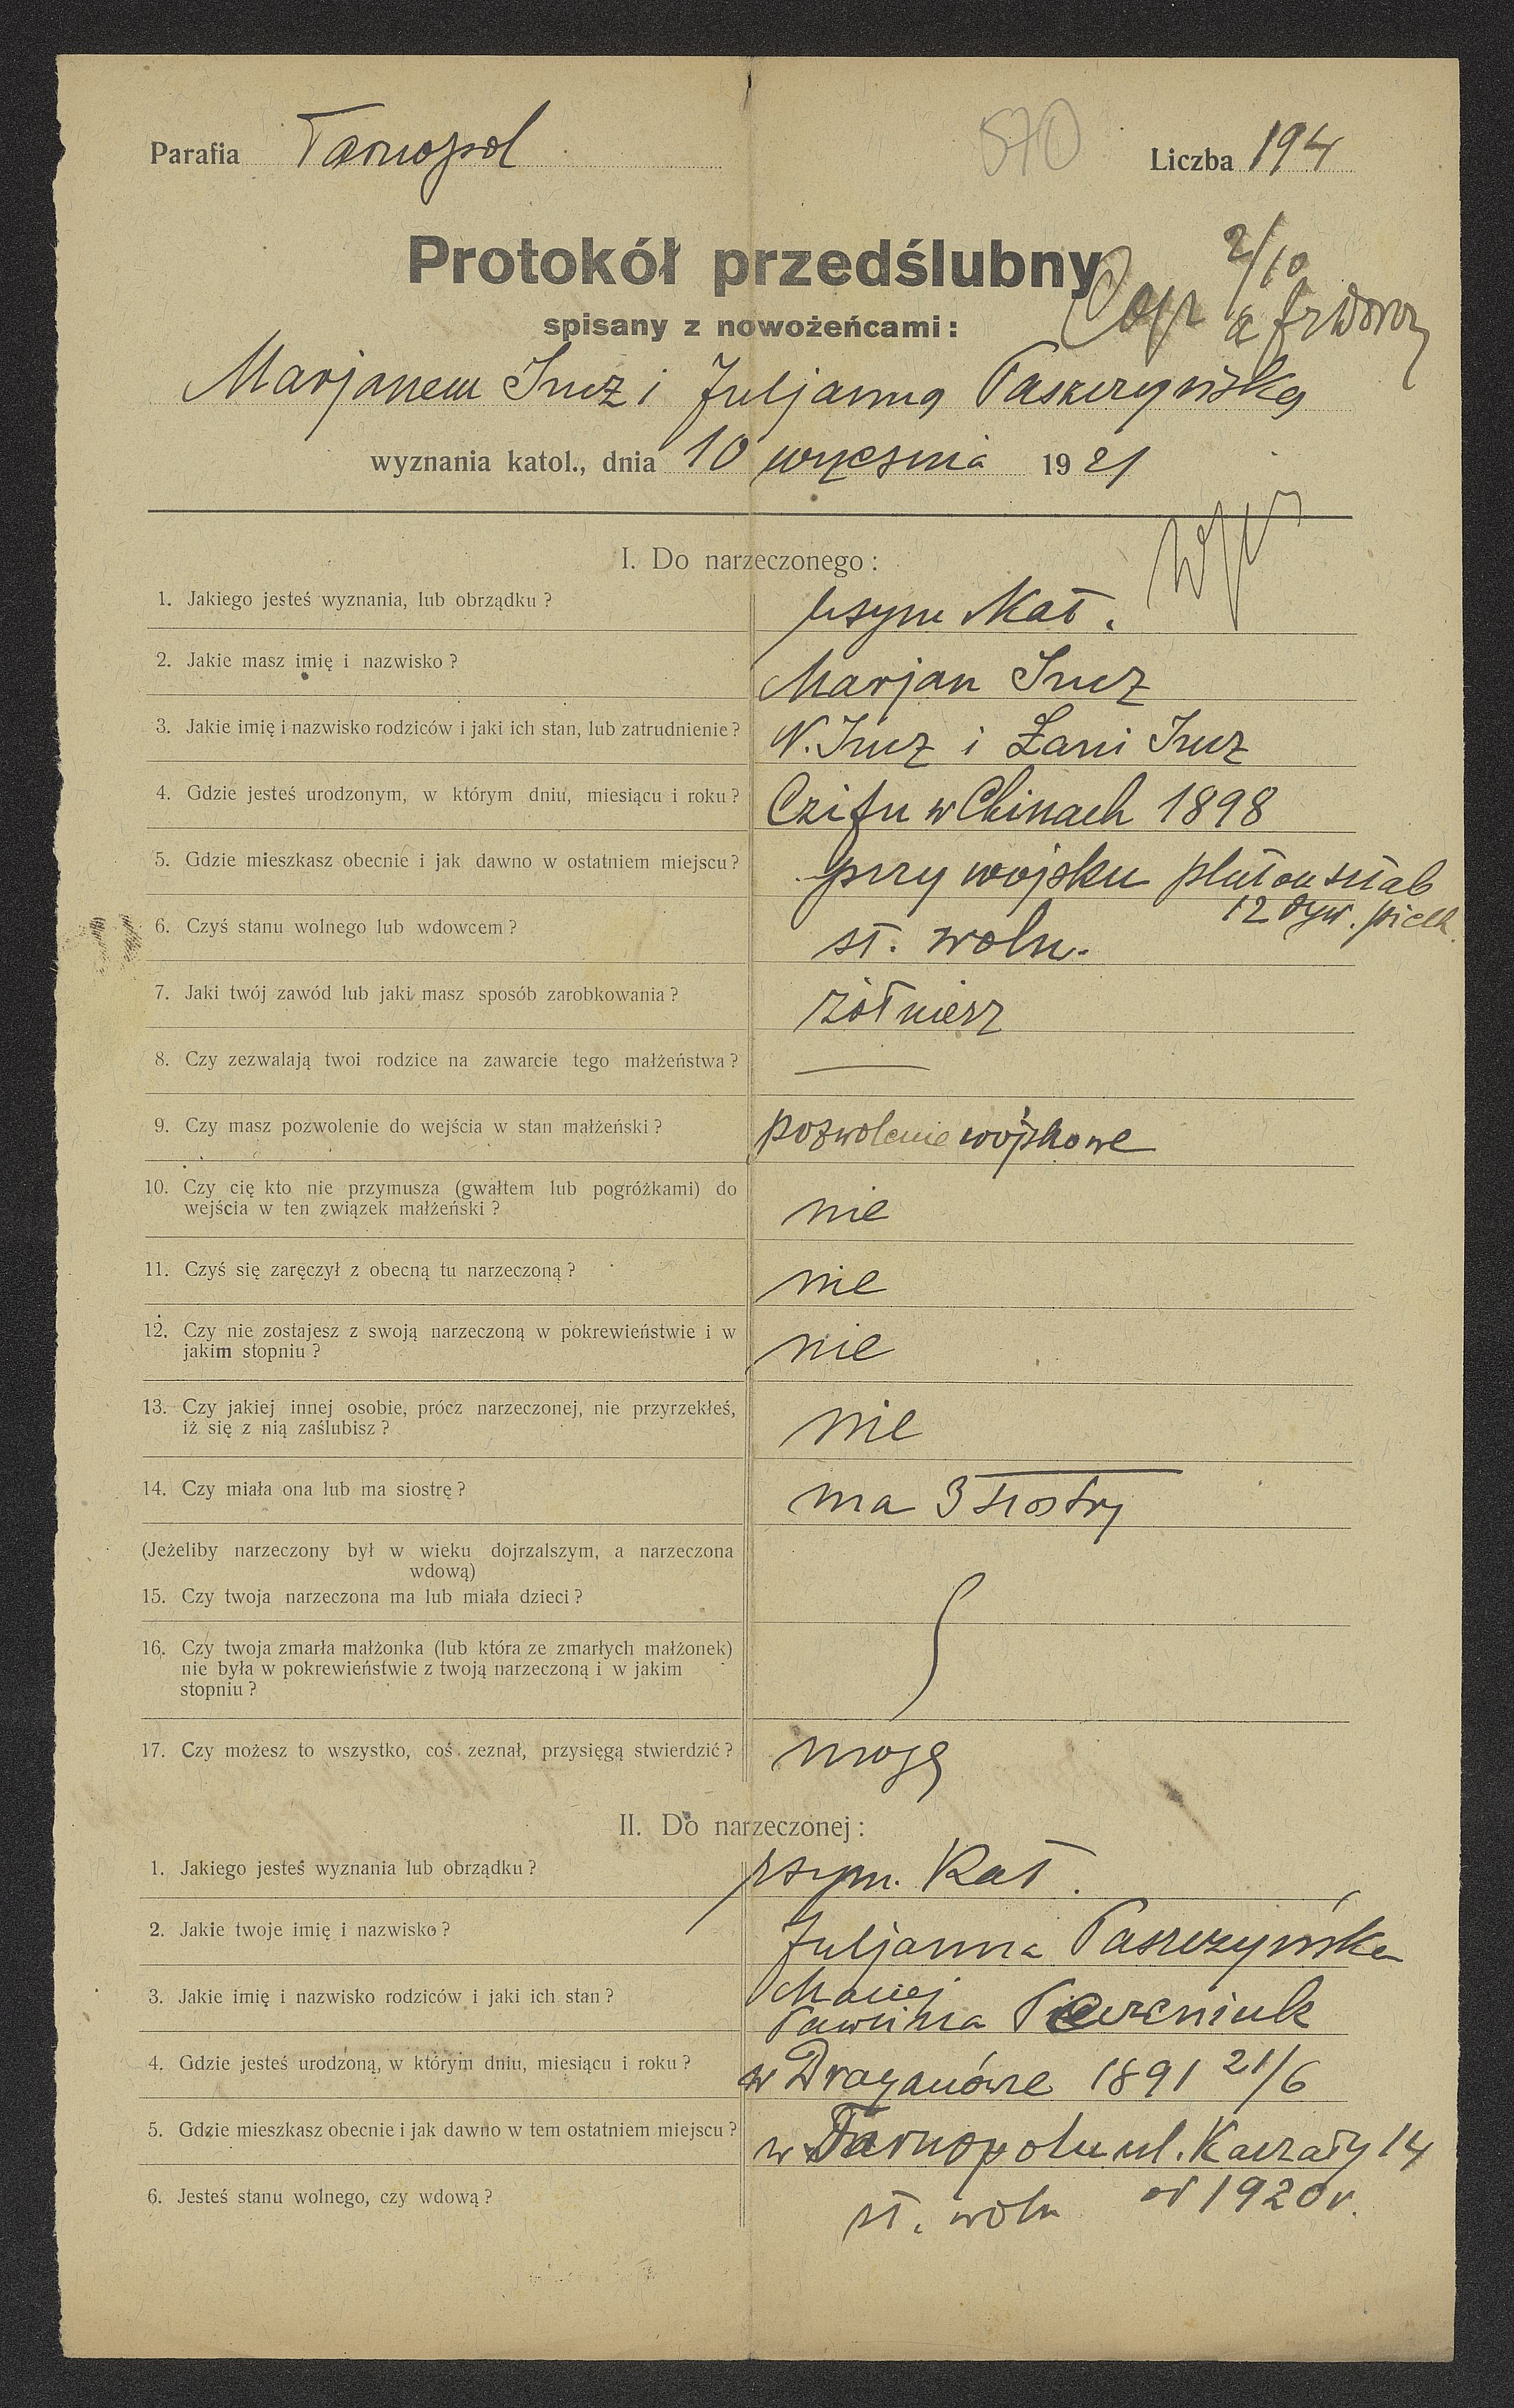 Parafia Tarnopol
570
Liczba 194
Protokół przedślubny
2/10
spisany z nowożeńcami:
Marjanem Inez i Juljanną Paszczyńską
wyznania katol., dnia 10 września 1921
I. Do narzeczonego:
1. Jakiego jesteś wyznania, lub obrządku? rzym kat.
2. Jakie masz imię i nazwisko? Marjan Inez
3. Jakie imię i nazwisko rodziców i jaki ich stan, lub zatrudnienie? N. Inez i Łani Inez
4. Gdzie jesteś urodzonym, w którym dniu, miesiącu i roku? Czifu w Chinach 1898
5. Gdzie mieszkasz obecnie i jak dawno w ostatniem miejscu? przy wojsku pluton sztab
12 dyw. piech.
6. Czyś stanu wolnego lub wdowcem? st. woln.
7. Jaki twój zawód lub jaki masz sposób zarobkowania? żołnierz
8. Czy zezwalają twoi rodzice na zawarcie tego małżeństwa? —
9. Czy masz pozwolenie do wejścia w stan małżeński? pozwolenie wojskowe
10. Czy cię kto nie przymusza (gwałtem lub pogróżkami) do
wejścia w ten związek małżeński? nie
11. Czyś się zaręczył z obecną tu narzeczoną? nie
12. Czy nie zostajesz z swoją narzeczoną w pokrewieństwie i w
jakim stopniu? nie
13. Czy jakiej innej osobie, prócz narzeczonej, nie przyrzekłeś,
iż się z nią zaślubisz? nie
14. Czy miała ona lub ma siostrę? ma 3 siostry
(Jeżeliby narzeczony był w wieku dojrzalszym, a narzeczona
wdową)
15. Czy twoja narzeczona ma lub miała dzieci?
16. Czy twoja zmarła małżonka (lub która ze zmarłych małżonek)
nie była w pokrewieństwie z twoją narzeczoną i w jakim
stopniu?
17. Czy możesz to wszystko, coś zeznał, przysięgą stwierdzić? mogę
II. Do narzeczonej:
1. Jakiego jesteś wyznania lub obrządku? rzym. kat.
2. Jakie twoje imię i nazwisko? Juljanna Paszczyńska
3. Jakie imię i nazwisko rodziców i jaki ich stan? Maciej
Pawlina
4. Gdzie jesteś urodzoną, w którym dniu, miesiącu i roku? w Draganówce 1891 21/6
5. Gdzie mieszkasz obecnie i jak dawno w tem ostatniem miejscu? w Tarnopolu ul. Kaczały 14
od 1920 r.
6. Jesteś stanu wolnego, czy wdową? st. woln